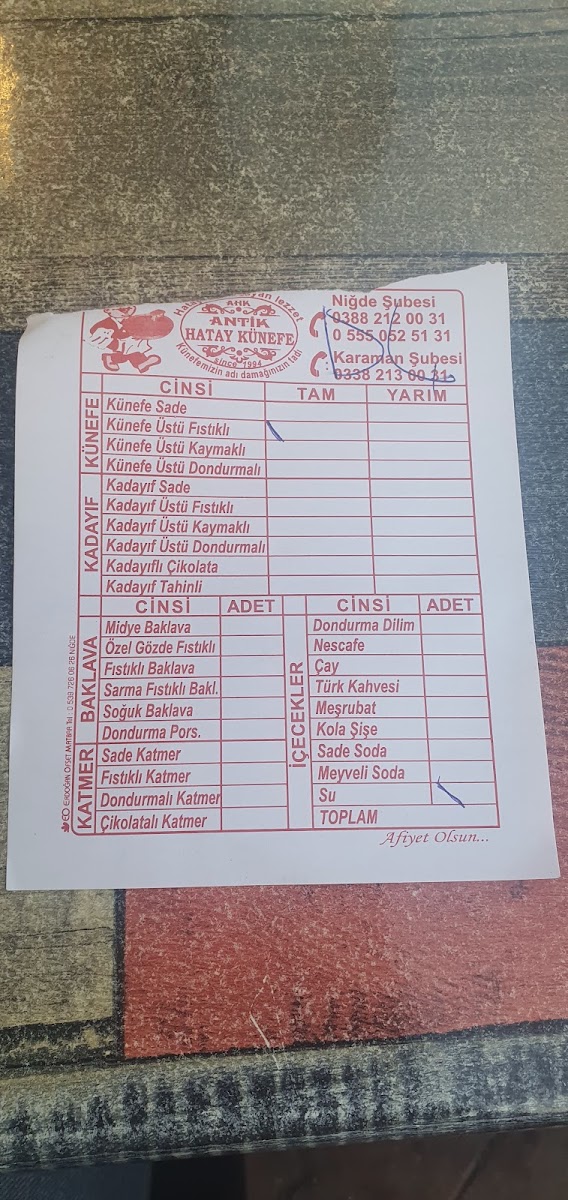 Hata
an lezzet
ANTİK
HATAY KÜNEFE
since 1994
Künefemizin adı damağınızın tadı
Niğde Şubesi
0388 212 00 31
0 555 052 51 31
Karaman Şubesi
0338 213 00 31
CİNSİ TAM YARIM
KÜNEFE
Künefe Sade
Künefe Üstü Fıstıklı
Künefe Üstü Kaymaklı
Künefe Üstü Dondurmalı
KADAYIF
Kadayıf Sade
Kadayıf Üstü Fıstıklı
Kadayıf Üstü Kaymaklı
Kadayıf Üstü Dondurmalı
Kadayıflı Çikolata
Kadayıf Tahinli
CİNSİ ADET
BAKLAVA
Midye Baklava
Özel Gözde Fıstıklı
Fıstıklı Baklava
Sarma Fıstıklı Bakl.
Soğuk Baklava
Dondurma Pors.
KATMER
Sade Katmer
Fıstıklı Katmer
Dondurmalı Katmer
Çikolatalı Katmer
CİNSİ ADET
İÇECEKLER
Dondurma Dilim
Nescafe
Çay
Türk Kahvesi
Meşrubat
Kola Şişe
Sade Soda
Meyveli Soda
Su
TOPLAM
Afiyet Olsun...